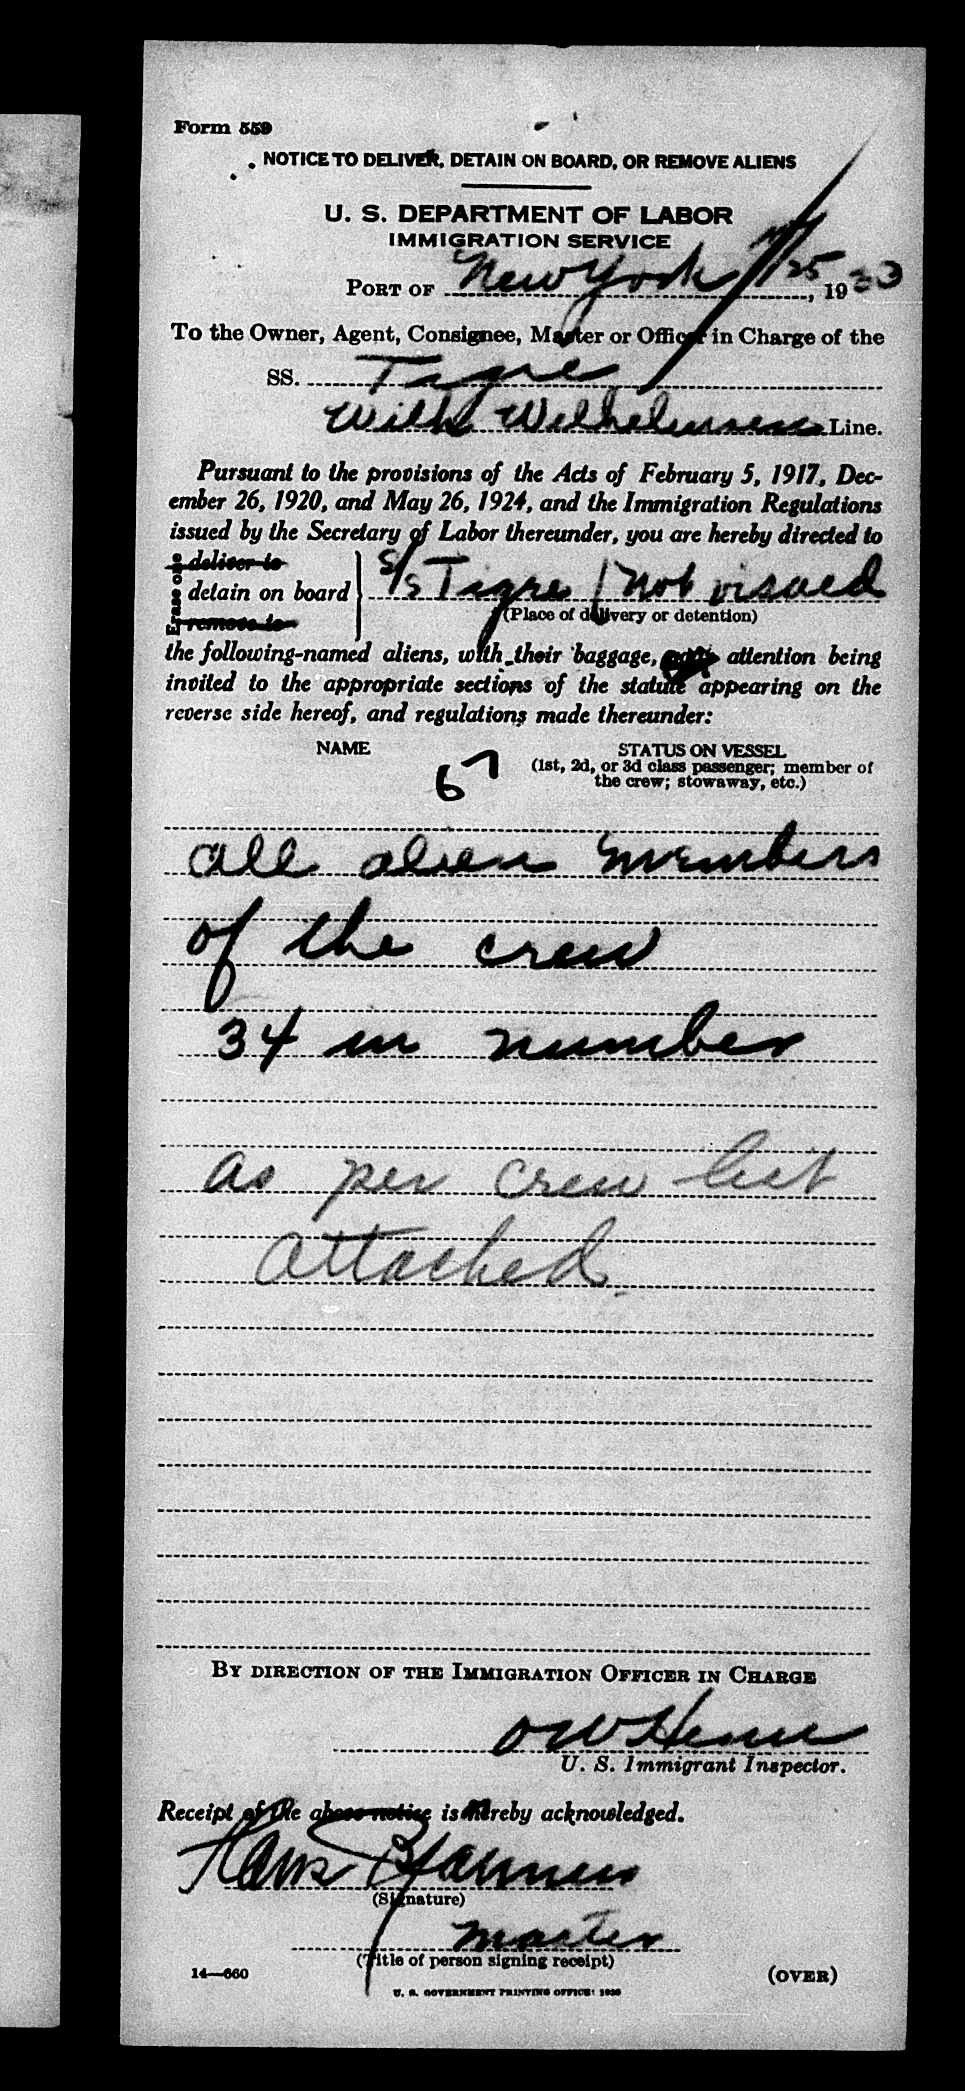 Form 559
NOTICE TO DELIVER, DETAIN ON BOARD, OR REMOVE ALIENS
U. S. DEPARTMENT OF LABOR
IMMIGRATION SERVICE
PORT OF New York /25, 1930
To the Owner, Agent, Consignee, Master or Officer in Charge of the
SS. Tigre
Wilh Wilhelmsen Line.
Pursuant to the provisions of the Acts of February 5, 1917, Dec-
ember 26, 1920, and May 26, 1924, and the Immigration Regulations
issued by the Secretary of Labor thereunder, you are hereby directed to
Erase one
deliver to
detain on board S/S Tigre / Not visaed
remove to
(Place of delivery or detention)
the following-named aliens, with their baggage, attention being
invited to the appropriate sections of the statute appearing on the
reverse side hereof, and regulations made thereunder:
NAME
STATUS ON VESSEL
(1st, 2d, or 3d class passenger; member of
the crew; stowaway, etc.)
67
all alien members
of the crew
34 in number
as per crew list
attached.
BY DIRECTION OF THE IMMIGRATION OFFICER IN CHARGE
U. S. Immigrant Inspector.
Receipt of the above notice is hereby acknowledged.
Hans
(Signature)
Master
(Title of person signing receipt)
14—660
(OVER)
U. S. GOVERNMENT PRINTING OFFICE: 1929